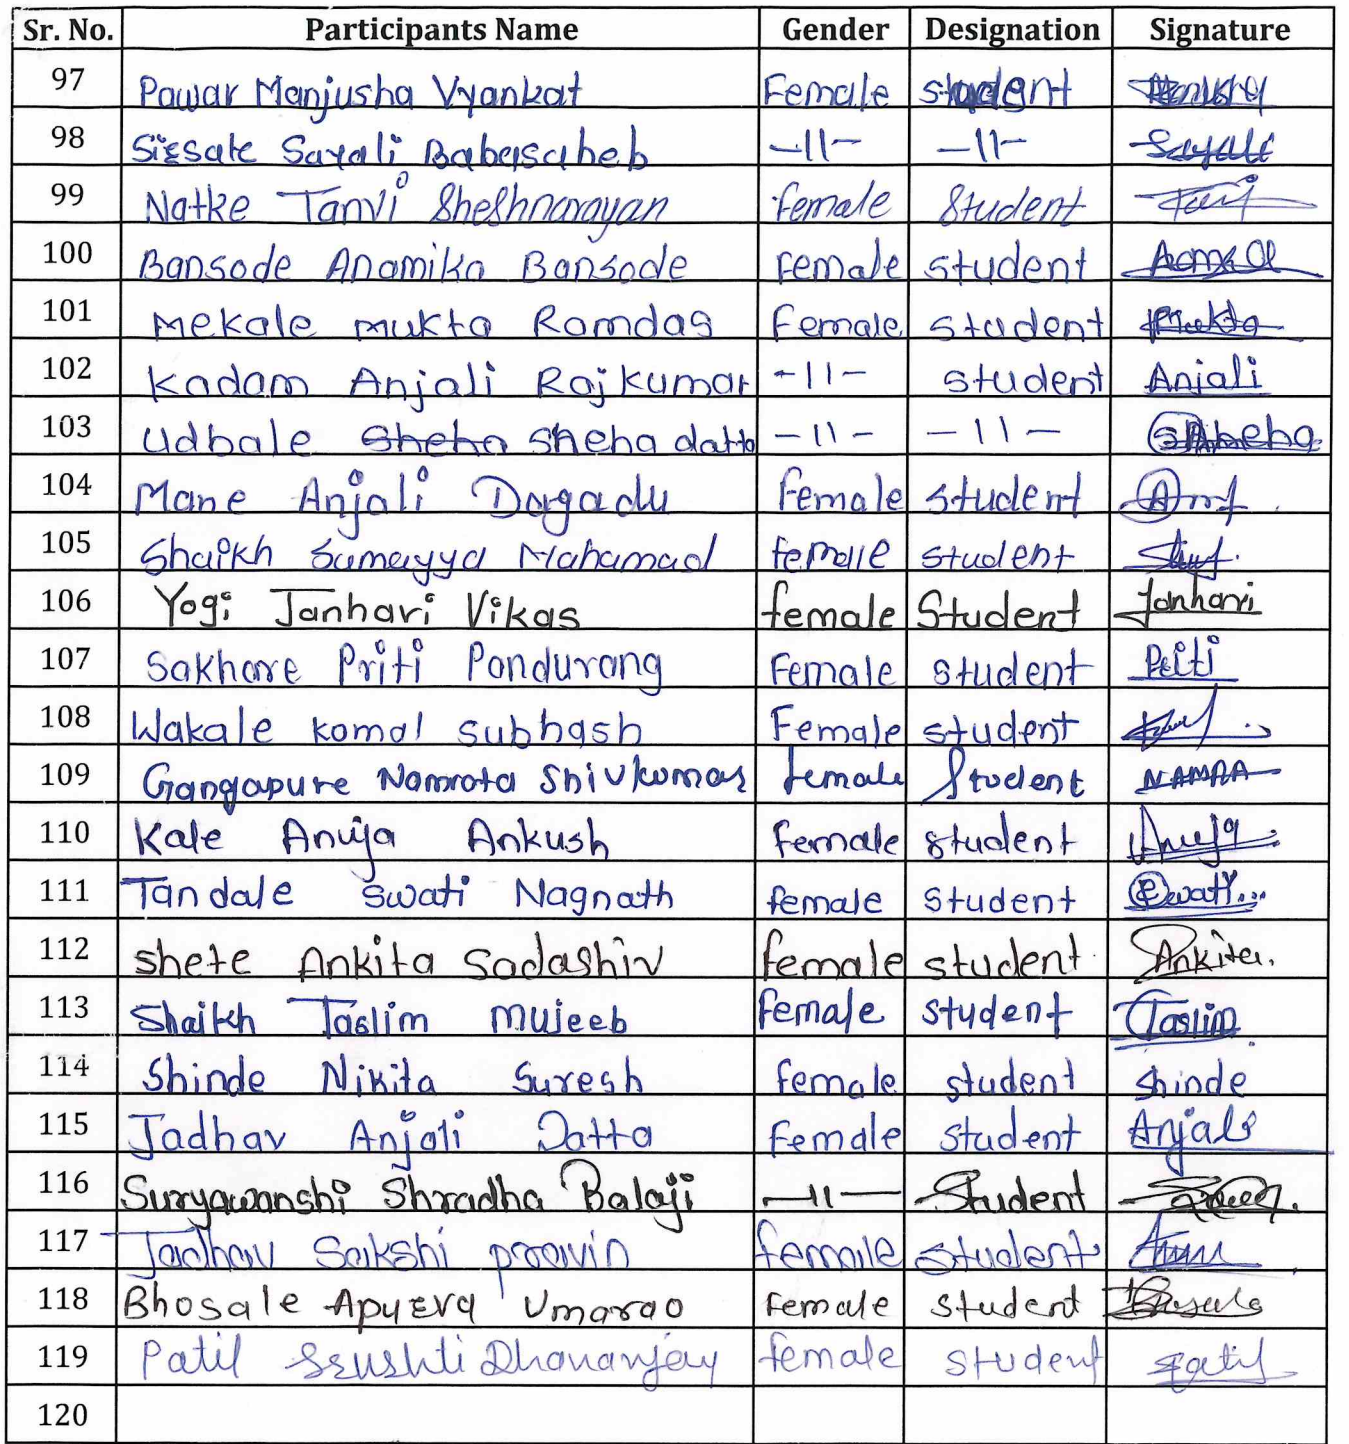 Sr. No. Participants Name Gender Designation Signature
97 Pawar Manjusha Vyankat Female student
98 Sirsate Sayali Babasaheb -11- -11- Sayali
99 Natke Tanvi Sheshnarayan female Student
100 Bansode Anamika Bansode female student
101 Mekale mukta Ramdas Female student Mukta
102 Kadam Anjali Rajkumar -11- student Anjali
103 Udbale sneha sneha datta -11- -11- sneha
104 Mane Anjali Dagadu female student
105 Shaikh Sumayya Mahamad female student
106 Yogi Janhavi Vikas female Student Janhavi
107 Sakhare Priti Pandurang Female student Priti
108 Wakale komal subhash Female student
109 Gangapure Namrata Shivkumar female Student NAMRA
110 Kale Anuja Ankush female student Anuja
111 Tandale swati Nagnath female student Swati...
112 shete Ankita Sadashiv female student Ankita.
113 Shaikh Taslim mujeeb female student Taslim
114 Shinde Nikita Suresh female student shinde
115 Jadhav Anjali Datta Female student Anjali
116 Suryawanshi Shradha Balaji -11- Student
117 Jadhav Sakshi pravin female student
118 Bhosale Apurva Umarao female student
119 Patil Srushti Dhananjay female student Patil
120